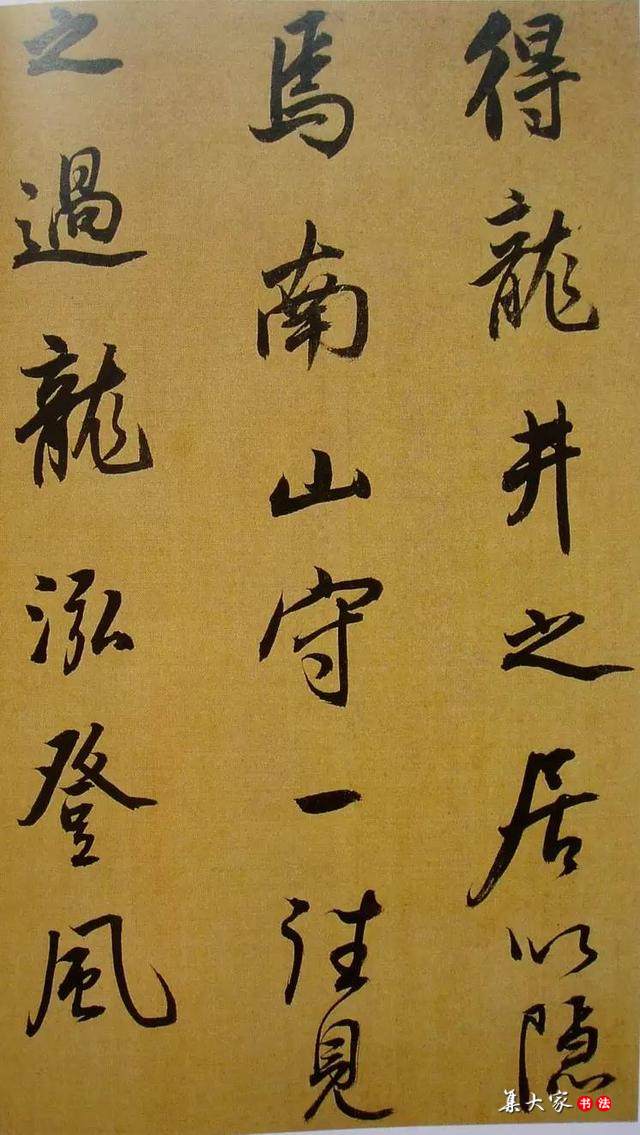 得龍井之居以隱
焉南山守一往見
之過龍泓登風
集大家书法